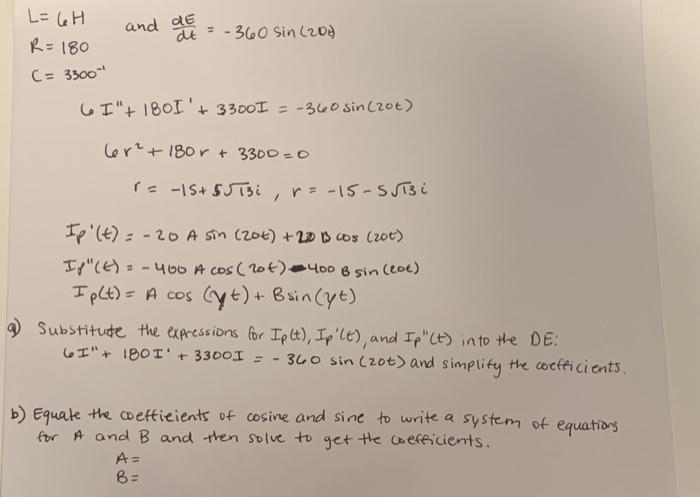 L= 6H and dE/dt = -360 sin(20t)
R= 180
C= 3300⁻¹
6I"+ 180I'+ 3300I = -360sin(20t)
6r²+ 180r + 3300=0
r= -15+ 5√13i , r= -15-5√13i
Ip'(t) = -20 A sin (20t) +20 B cos (20t)
Ip"(t) = -400 A cos(20t)-400 B sin(20t)
Ip(t)= A cos (γt)+ Bsin(γt)
a) Substitute the expressions for Ip(t), Ip'(t), and Ip"(t) into the DE:
6I"+ 180I' + 3300I = -360 sin(20t) and simplify the coefficients.
b) Equate the coefficients of cosine and sine to write a system of equations
for A and B and then solve to get the coefficients.
A=
B=